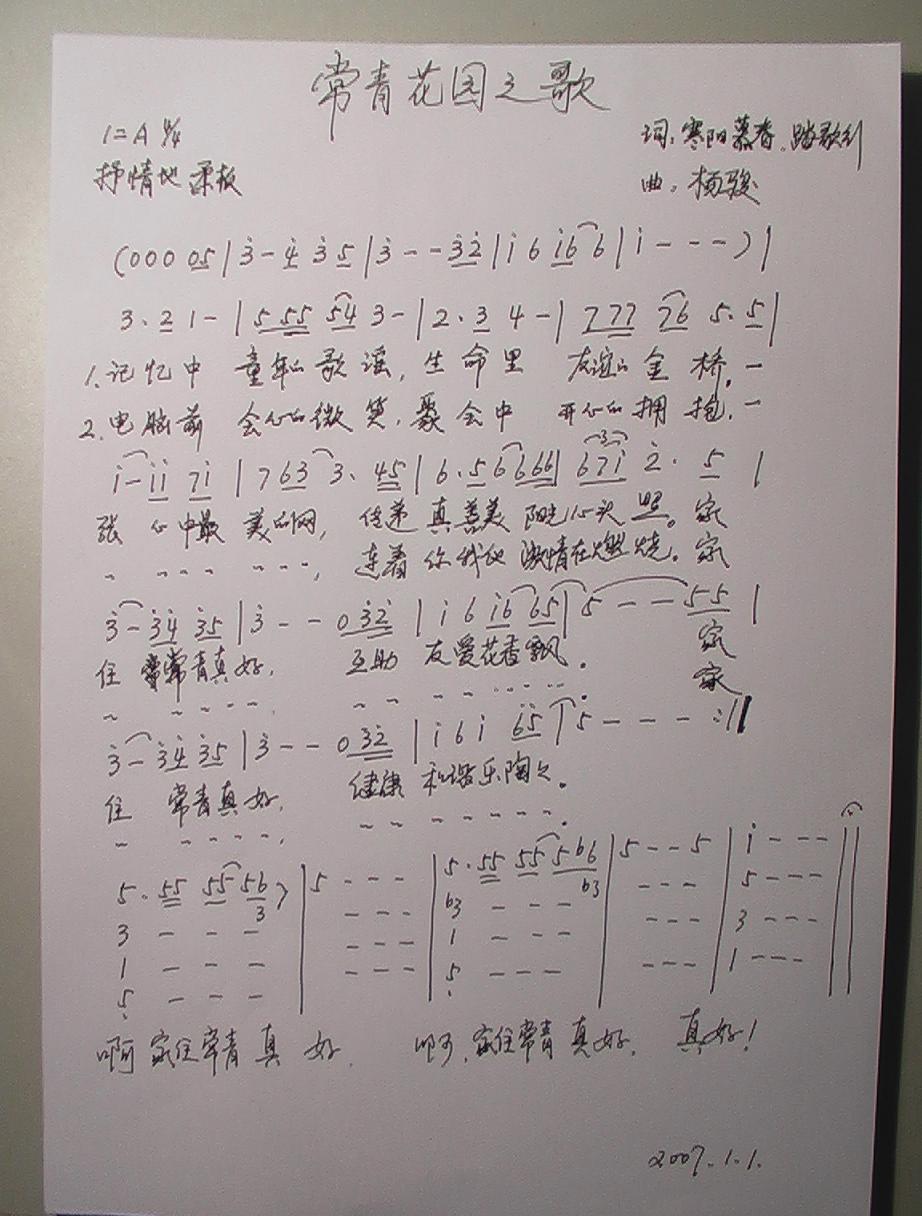 常青花园之歌
1=A 4/4
词：寒阳慕春、踏歌行
抒情地 柔板
曲：杨骏
(0 0 0 05 | 3 - 4 3 5 | 3 - - 32 | i 6 i6 6 | i - - - ) |
3 . 2 1 - | 5 55 54 3 - | 2 . 3 4 - | 7 77 76 5 . 5 |
1. 记忆中 童年的歌谣，生命里 友谊的金桥，一
2. 电脑前 会心的微笑，聚会中 开心的拥抱，一
i - ii 7i | 7 63 3 . 45 | 6 . 5 6666 | 671 2 . 5 |
张 心中最 美的网，传递真善美 阳光心头照。家
~ ~ ~ ~ ~ ~ ~，连着你我他 激情在燃烧。家
3 - 34 35 | 3 - - 032 | i 6 i6 65 | 5 - - 55 |
住 常青真好， 互助 友爱花香飘。 家
~ ~ ~ ~ ~. ~ ~ ~ ~ ~ ~ ~. 家
3 - 34 35 | 3 - - 032 | i 6 i 65 | 5 - - - :||
住 常青真好， 健康 和谐乐陶陶。
~ ~ ~ ~ ~, ~ ~ ~ ~ ~ ~ ~.
5 . 55 55 56 > | 5 - - - | 5 . 55 55 5b6 | 5 - - 5 | i - - - ||
3 b3 5 - - -
3 - - - - - - b3 - - - - - - 3 - - -
1 - - - - - - 1 - - - - - - 1 - - -
5 - - - - - - 5 - - - - - -
啊 家住常青真 好， 啊，家住常青真好， 真好！
2007.1.1.